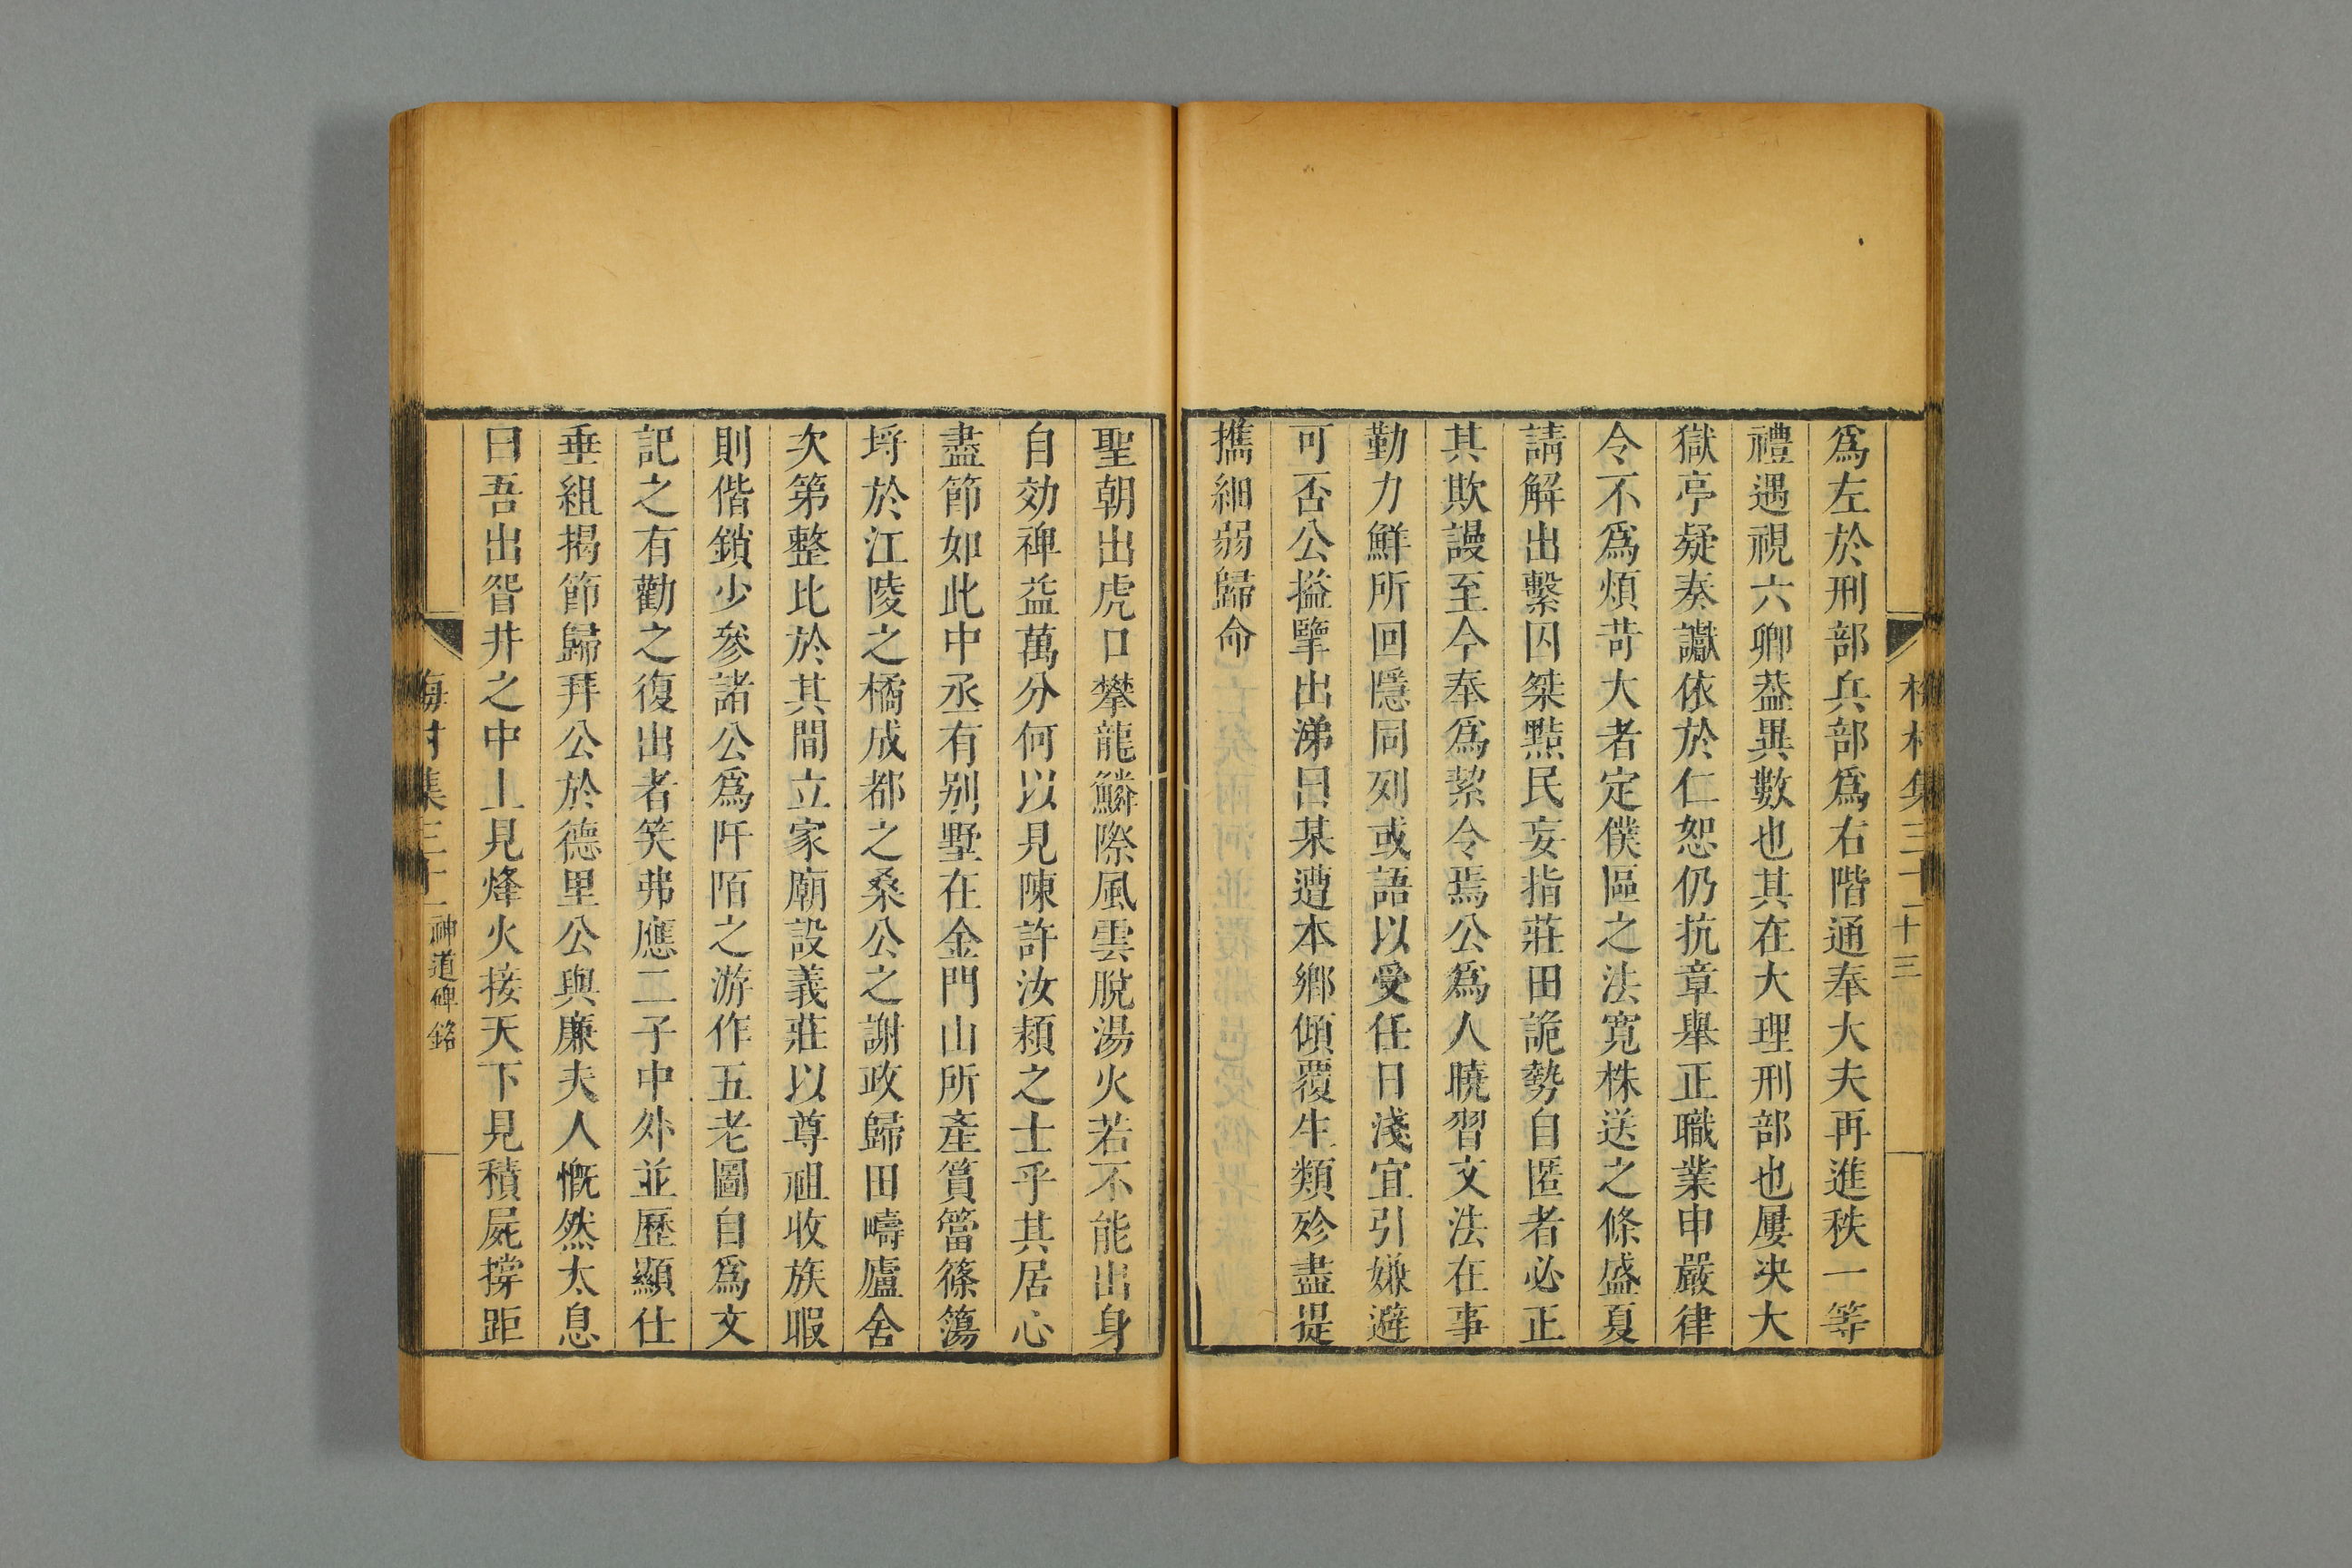 爲左於刑部兵部爲右階通奉大夫再進秩一等
禮遇視六卿葢異數也其在大理刑部也屢决大
獄亭疑奏讞依於仁恕仍抗章舉正職業申嚴律
令不爲煩苛大者定僕區之法寛株送之條盛夏
請解出繫囚桀黠民妄指莊田詭勢自匿者必正
其欺謾至今奉爲絜令焉公爲人曉習文法在事
勤力鮮所回隱同列或語以受任日淺宜引嫌避
可否公搤掔出涕曰某遭本鄉傾覆生類殄盡提
擕細弱歸命
聖朝出虎口攀龍鱗際風雲脫湯火若不能出身
自効裨益萬分何以見陳許汝頴之士乎其居心
盡節如此中丞有别墅在金門山所產篔簹篠簜
埒於江陵之橘成都之桑公之謝政歸田疇廬舍
次第整比於其間立家廟設義莊以尊祖收族暇
則偕鎖少參諸公爲阡陌之游作五老圖自爲文
記之有勸之復出者笑弗應二子中外並歷顯仕
垂組揭節歸拜公於德里公與廉夫人慨然太息
曰吾出眢井之中上見烽火接天下見積屍撐距
梅村集三十一 神道碑銘
梅村集三十一 十三